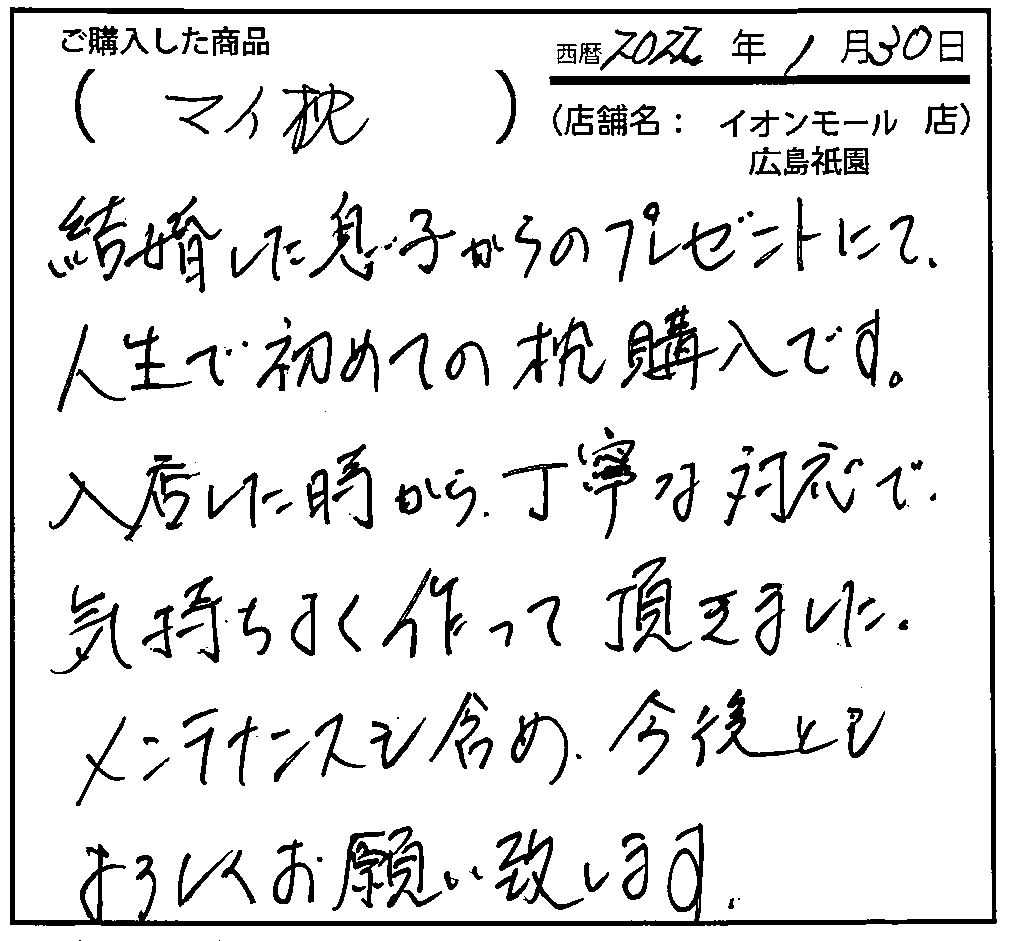 ご購入した商品
西暦 2022 年 1 月 30 日
( マイ枕 )
(店舗名: イオンモール 店)
広島祇園
結婚した息子からのプレゼントにて、
人生で初めての枕購入です。
入店した時から、丁寧な対応で、
気持ちよく作って頂きました。
メンテナンスも含め、今後とも
よろしくお願い致します。